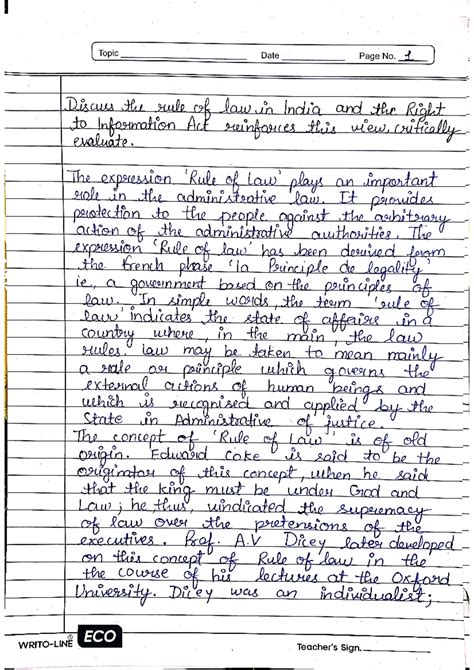 Topic
Date
Page No. 1
Discuss the rule of law in India and the Right
to Information Act reinforces this view, critically
evaluate.
The expression 'Rule of Law' plays an important
role in the administrative law. It provides
protection to the people against the arbitrary
action of the administrative authorities. The
expression 'Rule of law' has been derived from
the french phase 'la Principle de legality'
ie., a government based on the principles of
law. In simple words, the term 'rule of
law' indicates the state of affairs in a
country where, in the main, the law
rules. Law may be taken to mean mainly
a rule or principle which governs the
external actions of human beings and
which is recognised and applied by the
State in Administrative of justice.
The concept of 'Rule of Law' is of old
origin. Edward Coke is said to be the
originator of this concept, when he said
that the king must be under God and
Law; he thus, vindicated the supremacy
of law over the pretensions of the
executives. Prof. A.V Dicey later developed
on this concept of Rule of law in the
the course of his lectures at the Oxford
University. Dicey was an individualist;
WRITO-LINE ECO
Teacher's Sign.